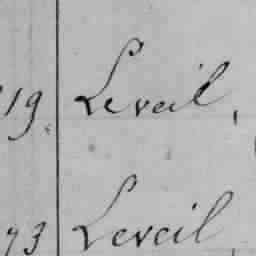 19. Leveil,
73 Leveil